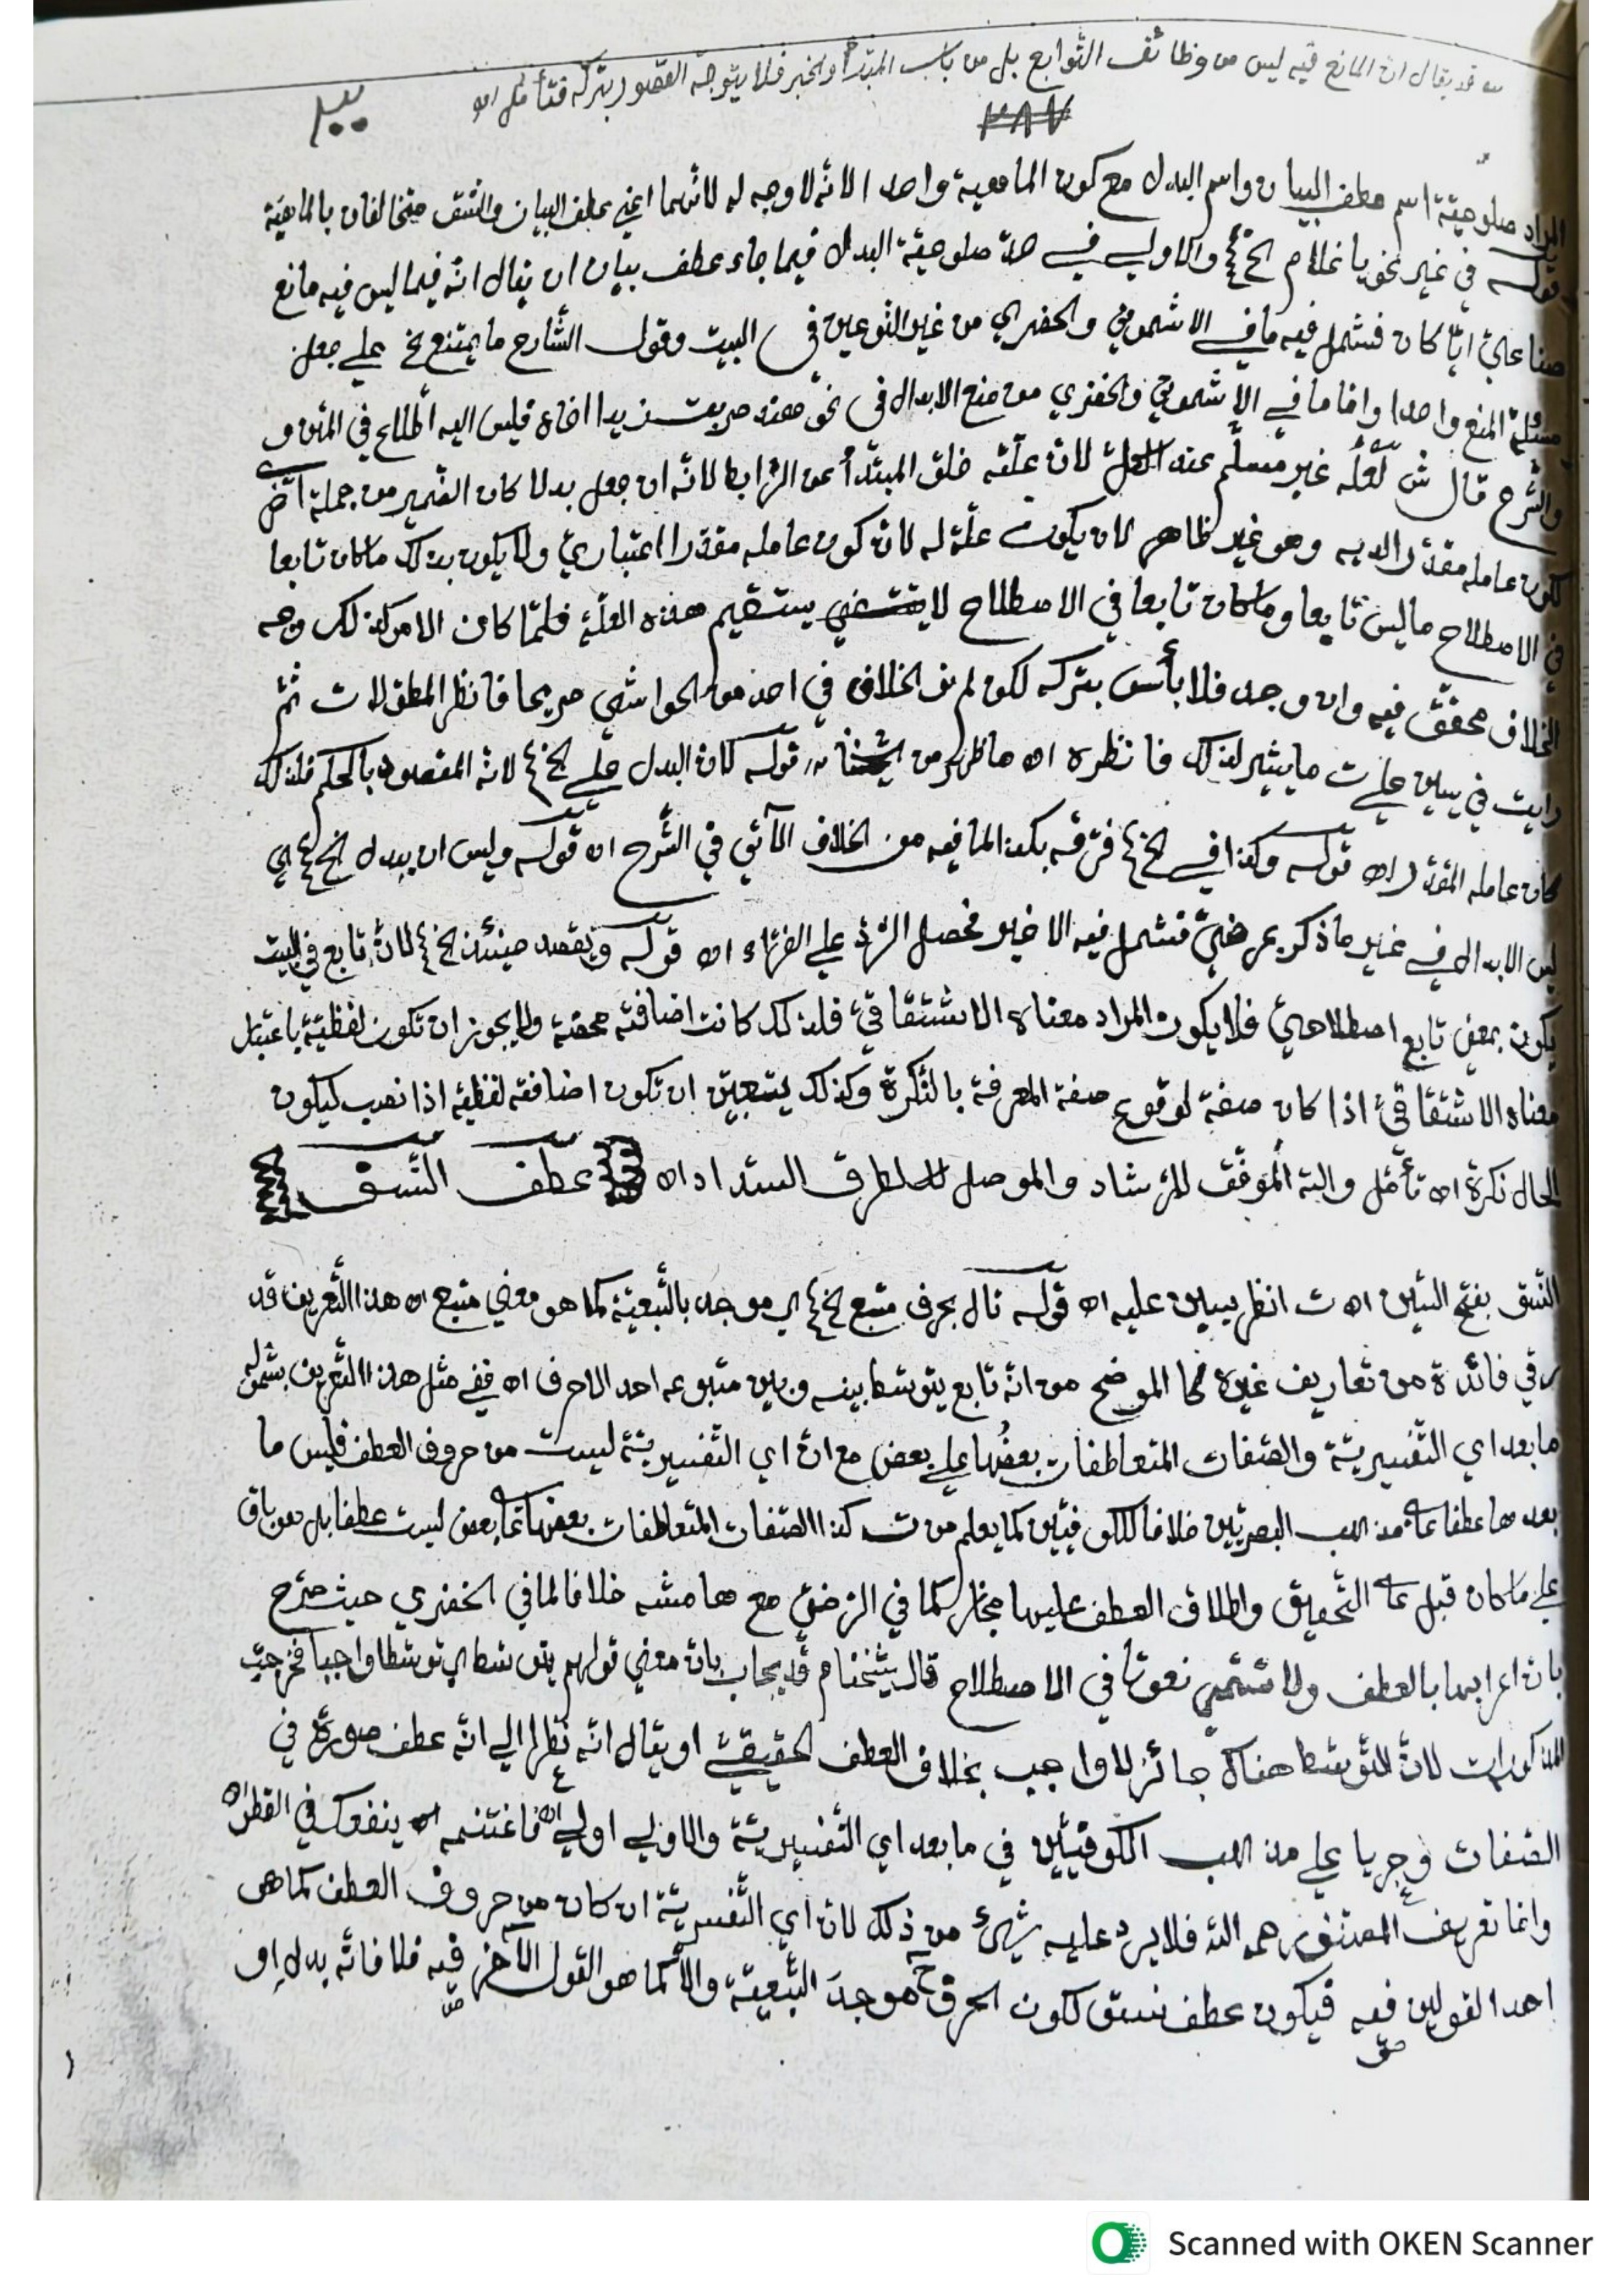 قد يقال ان المانع فيه ليس من وظائف التوابع بل من باب المبتدأ والخبر فلا يتوجه القصور بتركه فتأمل اه
٢٨٧
المراد صلوحية اسم عطف البيان واسم البدل مع كون الما واحدا لانه لا وجه له لانهما اعني عطف البيان والنسق متخالفان بالماهية
قوله في غير نحو يا غلام الخ والاولى في حد صلوحية البدل فيما جاء عطف بيان ان يقال انه فيما ليس فيه مانع
صناعي ايا كان فشمل فيه ما في الاشموني والخضري من غير النوعين في البيت وقول الشارح ما يمتنع على جعل
مسئلة المنع واحدا واما ما في الاشموني والخضري من منع الابدال في نحو هند ضربت زيدا اخاه فليس اليه في المتن و
والشرح قال ش لعله غير مسلم عند لان علته خلو المبتدأ عن الرابط لانه ان جعل بدلا كان الضمير من جملة اخرى
لكون عامله مقدرا لديه وهو غير ظاهر لان يكون علة له لان كون عامله مقدرا اعتباري ولا يكون بذلك ما كان تابعا
في الاصطلاح ما ليس تابعا وما كان تابعا في الاصطلاح لا يستقيم هذه العلة فلما كان الامر كذلك وجه
الخلاف محقق فيه وان وجد فلا بأس بتركه لكن لم نر الخلاف في احد من الحواشي صريحا فانظر المطولات ثم
رايت في يس علي ت ما يشير لذلك فانظره اه ما ظهر من قوله كان البدل على الخ لانه المقصود بالحكم فلذلك
كان عامله المقدر اه قوله وكذا في الخ فرقه بكذا لما فيه من الخلاف الآتي في الشرح اه قوله وليس ان يبدل الخ اي
ليس الابدال في غير ما ذكر بمرضي فشمل فيه الاخير فحصل الرد على الفراء اه قوله ويقصد حينئذ الخ لان تابع في البيت
يكون بمعنى تابع اصطلاحي فلا يكون المراد معناه الاشتقاقي فلذلك كانت اضافته محضة ولا يجوز ان تكون لفظية باعتبار
معناه الاشتقاقي اذا كان صفة لوقوع صفة المعرفة بالنكرة وكذلك يتعين ان تكون اضافته لفظية اذا نصب ليكون
الحال نكرة اه تأمل والله الموفق للرشاد والموصل لطرق السداد اه عطف النسق
النسق بفتح السين اه ت انظر يس عليه اه قوله تال بحرف متبع الخ اي موجد بالتبعية كما هو معنى متبع اه هذا التعريف قد
رقي فائدة من تعاريف غيره كما الموضح من انه تابع يتوسط بينه وبين متبوعه احد الاحرف اه ففي مثل هذا التعريف يشمل
ما بعد اي التفسيرية والصفات المتعاطفات بعضها على بعض مع ان اي التفسيرية ليست من حروف العطف فليس ما
بعدها عطفا على مذهب البصريين خلافا للكوفيين كما يعلم من ت كذا الصفات المتعاطفات بعضها على بعض ليست عطفا بل هو باق
على ما كان قبل على التحقيق واطلاق العطف عليها مجاز كما في الرضي مع هامشه خلافا لما في الخضري حيث صرح
بان اعرابها بالعطف ولا تسمى نعوتا في الاصطلاح قال شيخنا م قد يجاب بان معنى قولهم يتوسط اي توسطا واجبا فخرجت
المذكورات لان التوسط هناك جائز لا واجب بخلاف العطف الحقيقي او يقال انه نظرا الى انه عطف صورة في
الصفات وجريا على مذهب الكوفيين في ما بعد اي التفسيرية والاولى اولى اه فاغتنمه اه ينفعك في القطر اه
واما تعريف المصنف رحمه الله فلا يرد عليه شيء من ذلك لان اي التفسيرية ان كان من حروف العطف كما هو
احد القولين فيه فيكون عطف نسق لكون الحرف موجد التبعية والا كما هو القول الآخر فيه فلا فانه بدل او
Scanned with OKEN Scanner